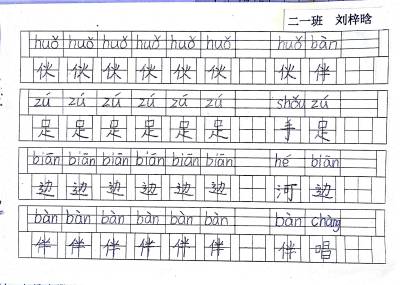 二一班 刘梓晗
huǒ huǒ huǒ huǒ huǒ huǒ huǒ huǒ bàn
伙 伙 伙 伙 伙 伙 伙 伙 伴
zú zú zú zú zú zú shǒu zú
足 足 足 足 足 足 手 足
biān biān biān biān biān biān hé biān
边 边 边 边 边 边 河 边
bàn bàn bàn bàn bàn bàn bàn chàng
伴 伴 伴 伴 伴 伴 伴 唱